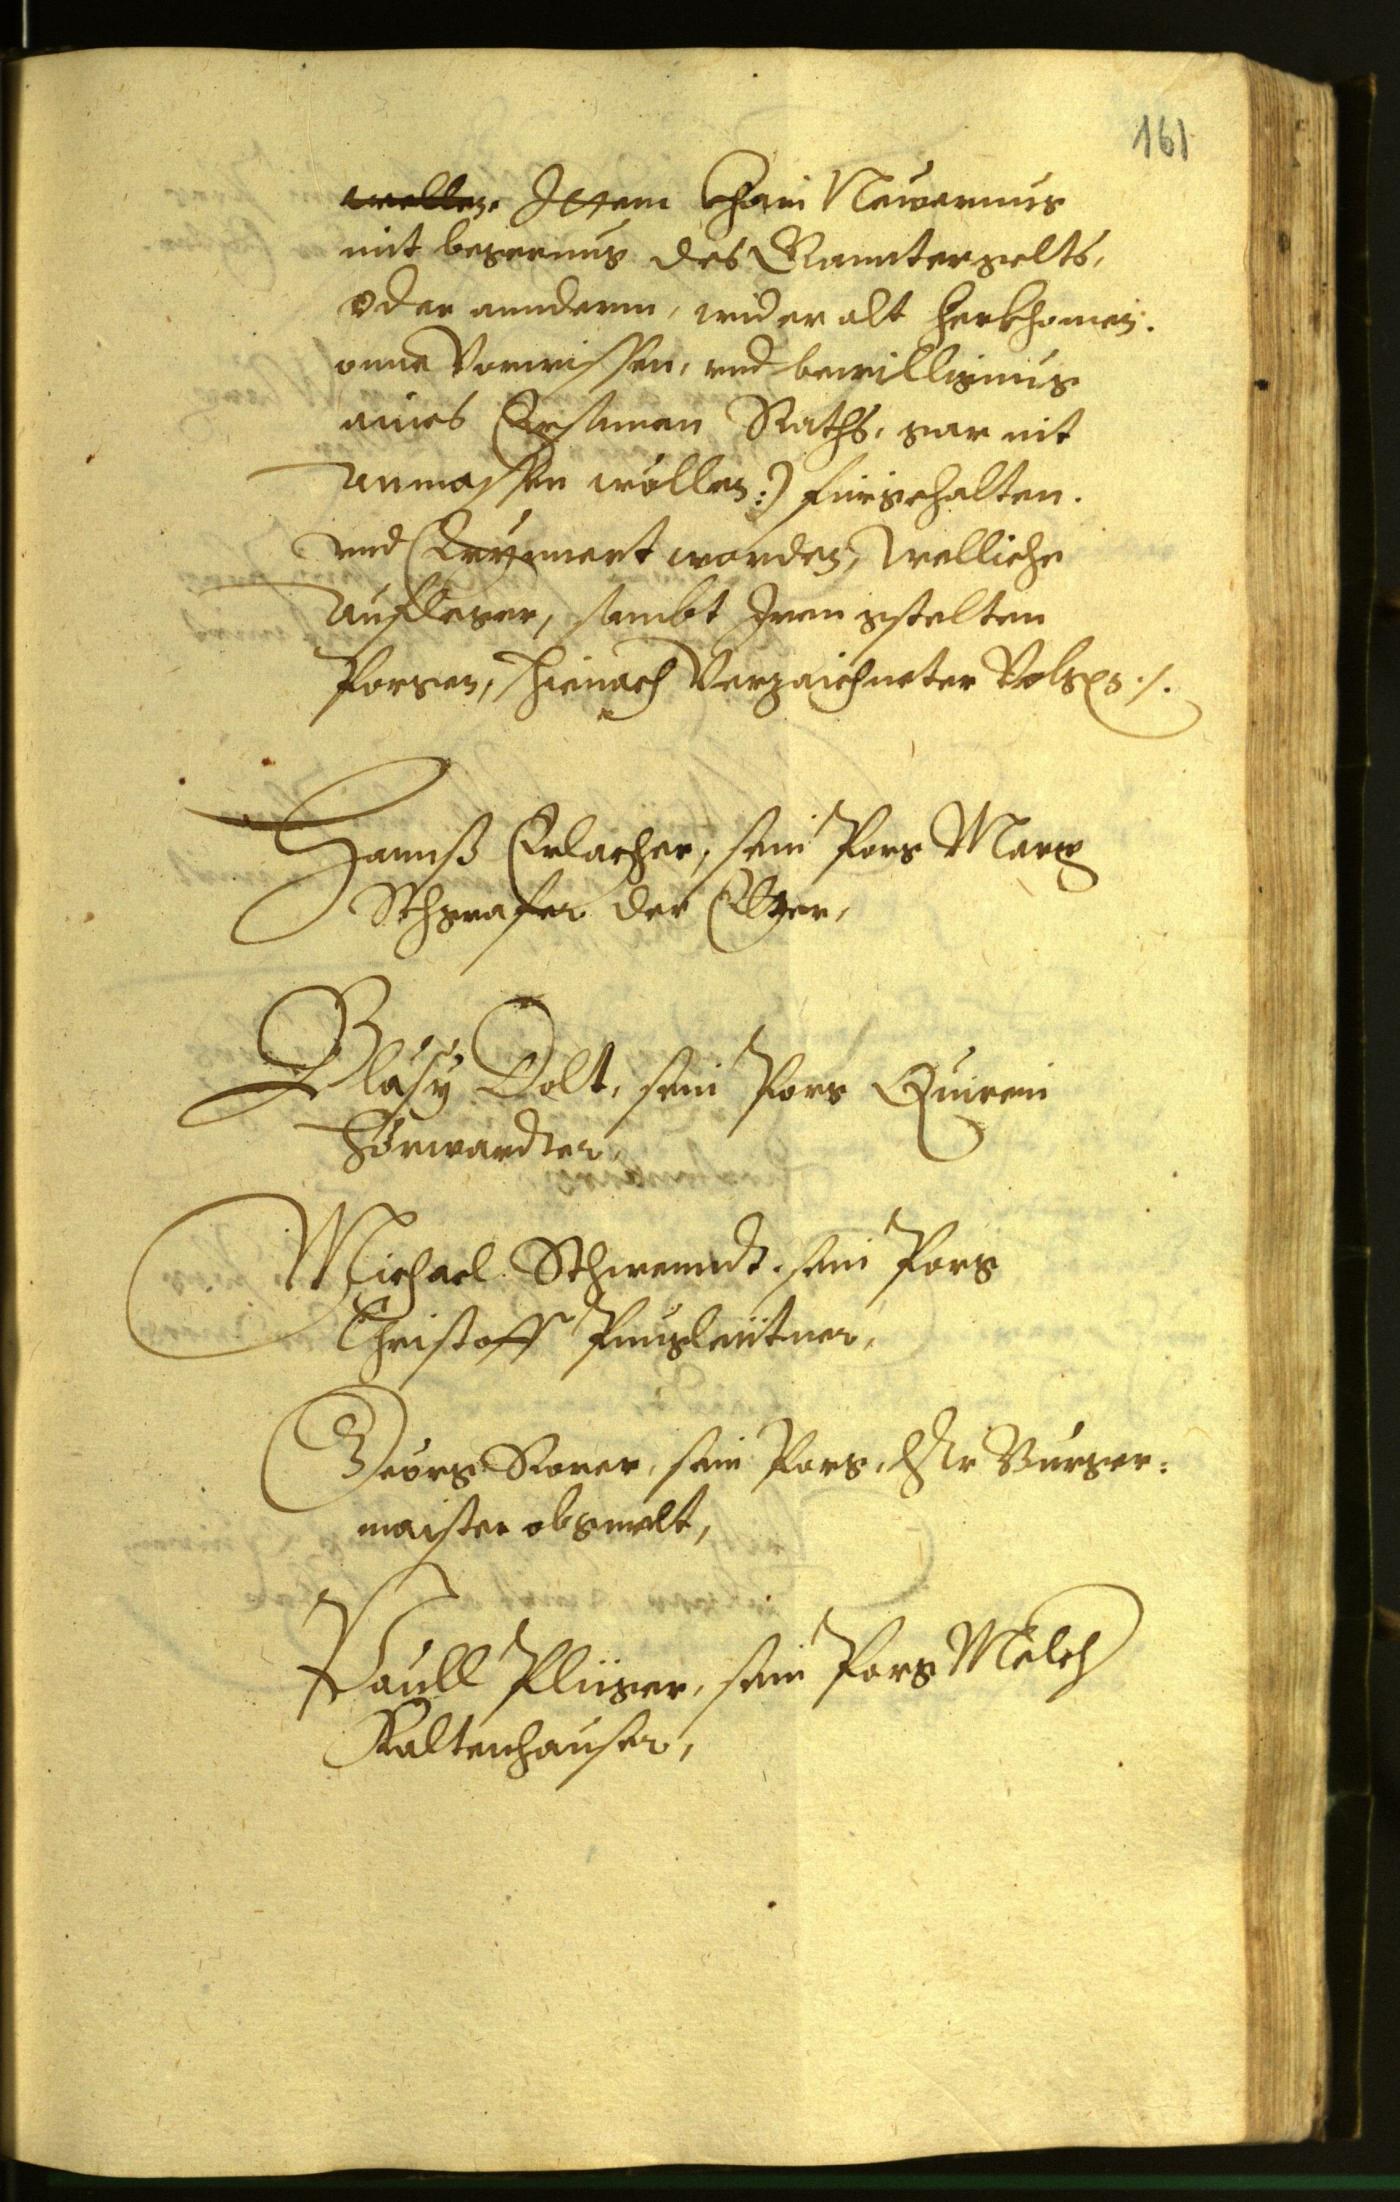 161
wellen. Ittem khain Newerung
mit begerung des Rannterzelts,
oder anndern, wider alt herkhomen.
onne Vorwissen, und bewilligung
aines Ersamen Raths, gar nit
anmassen wöllen :) fürgehalten.
und worden, welliche
Aufleger, sambt Iren gstelten
Porgen, hienach Verzaichneter Volgen ./.
Hannß Erlacher, sein Porg Marx
Schgrafer der Elter,
Blasy Dolt, sein Porg Quirein
Hörwardter,
Michael Schwemdt. sein Porg
Christoff Pmugleütner,
Georg Rorer, sein Porg, Herr Burger:
maister obgmelt,
Paull Plüger, sein Porg Melch
Kaltenhauser,